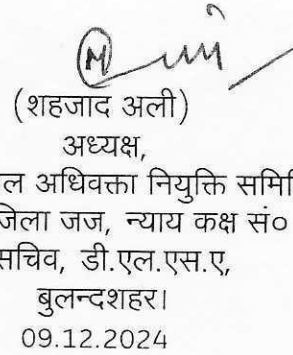 (शहजाद अली)
अध्यक्ष,
ल अधिवक्ता नियुक्ति समिति
जिला जज, न्याय कक्ष सं०
सचिव, डी.एल.एस.ए,
बुलन्दशहर।
09.12.2024